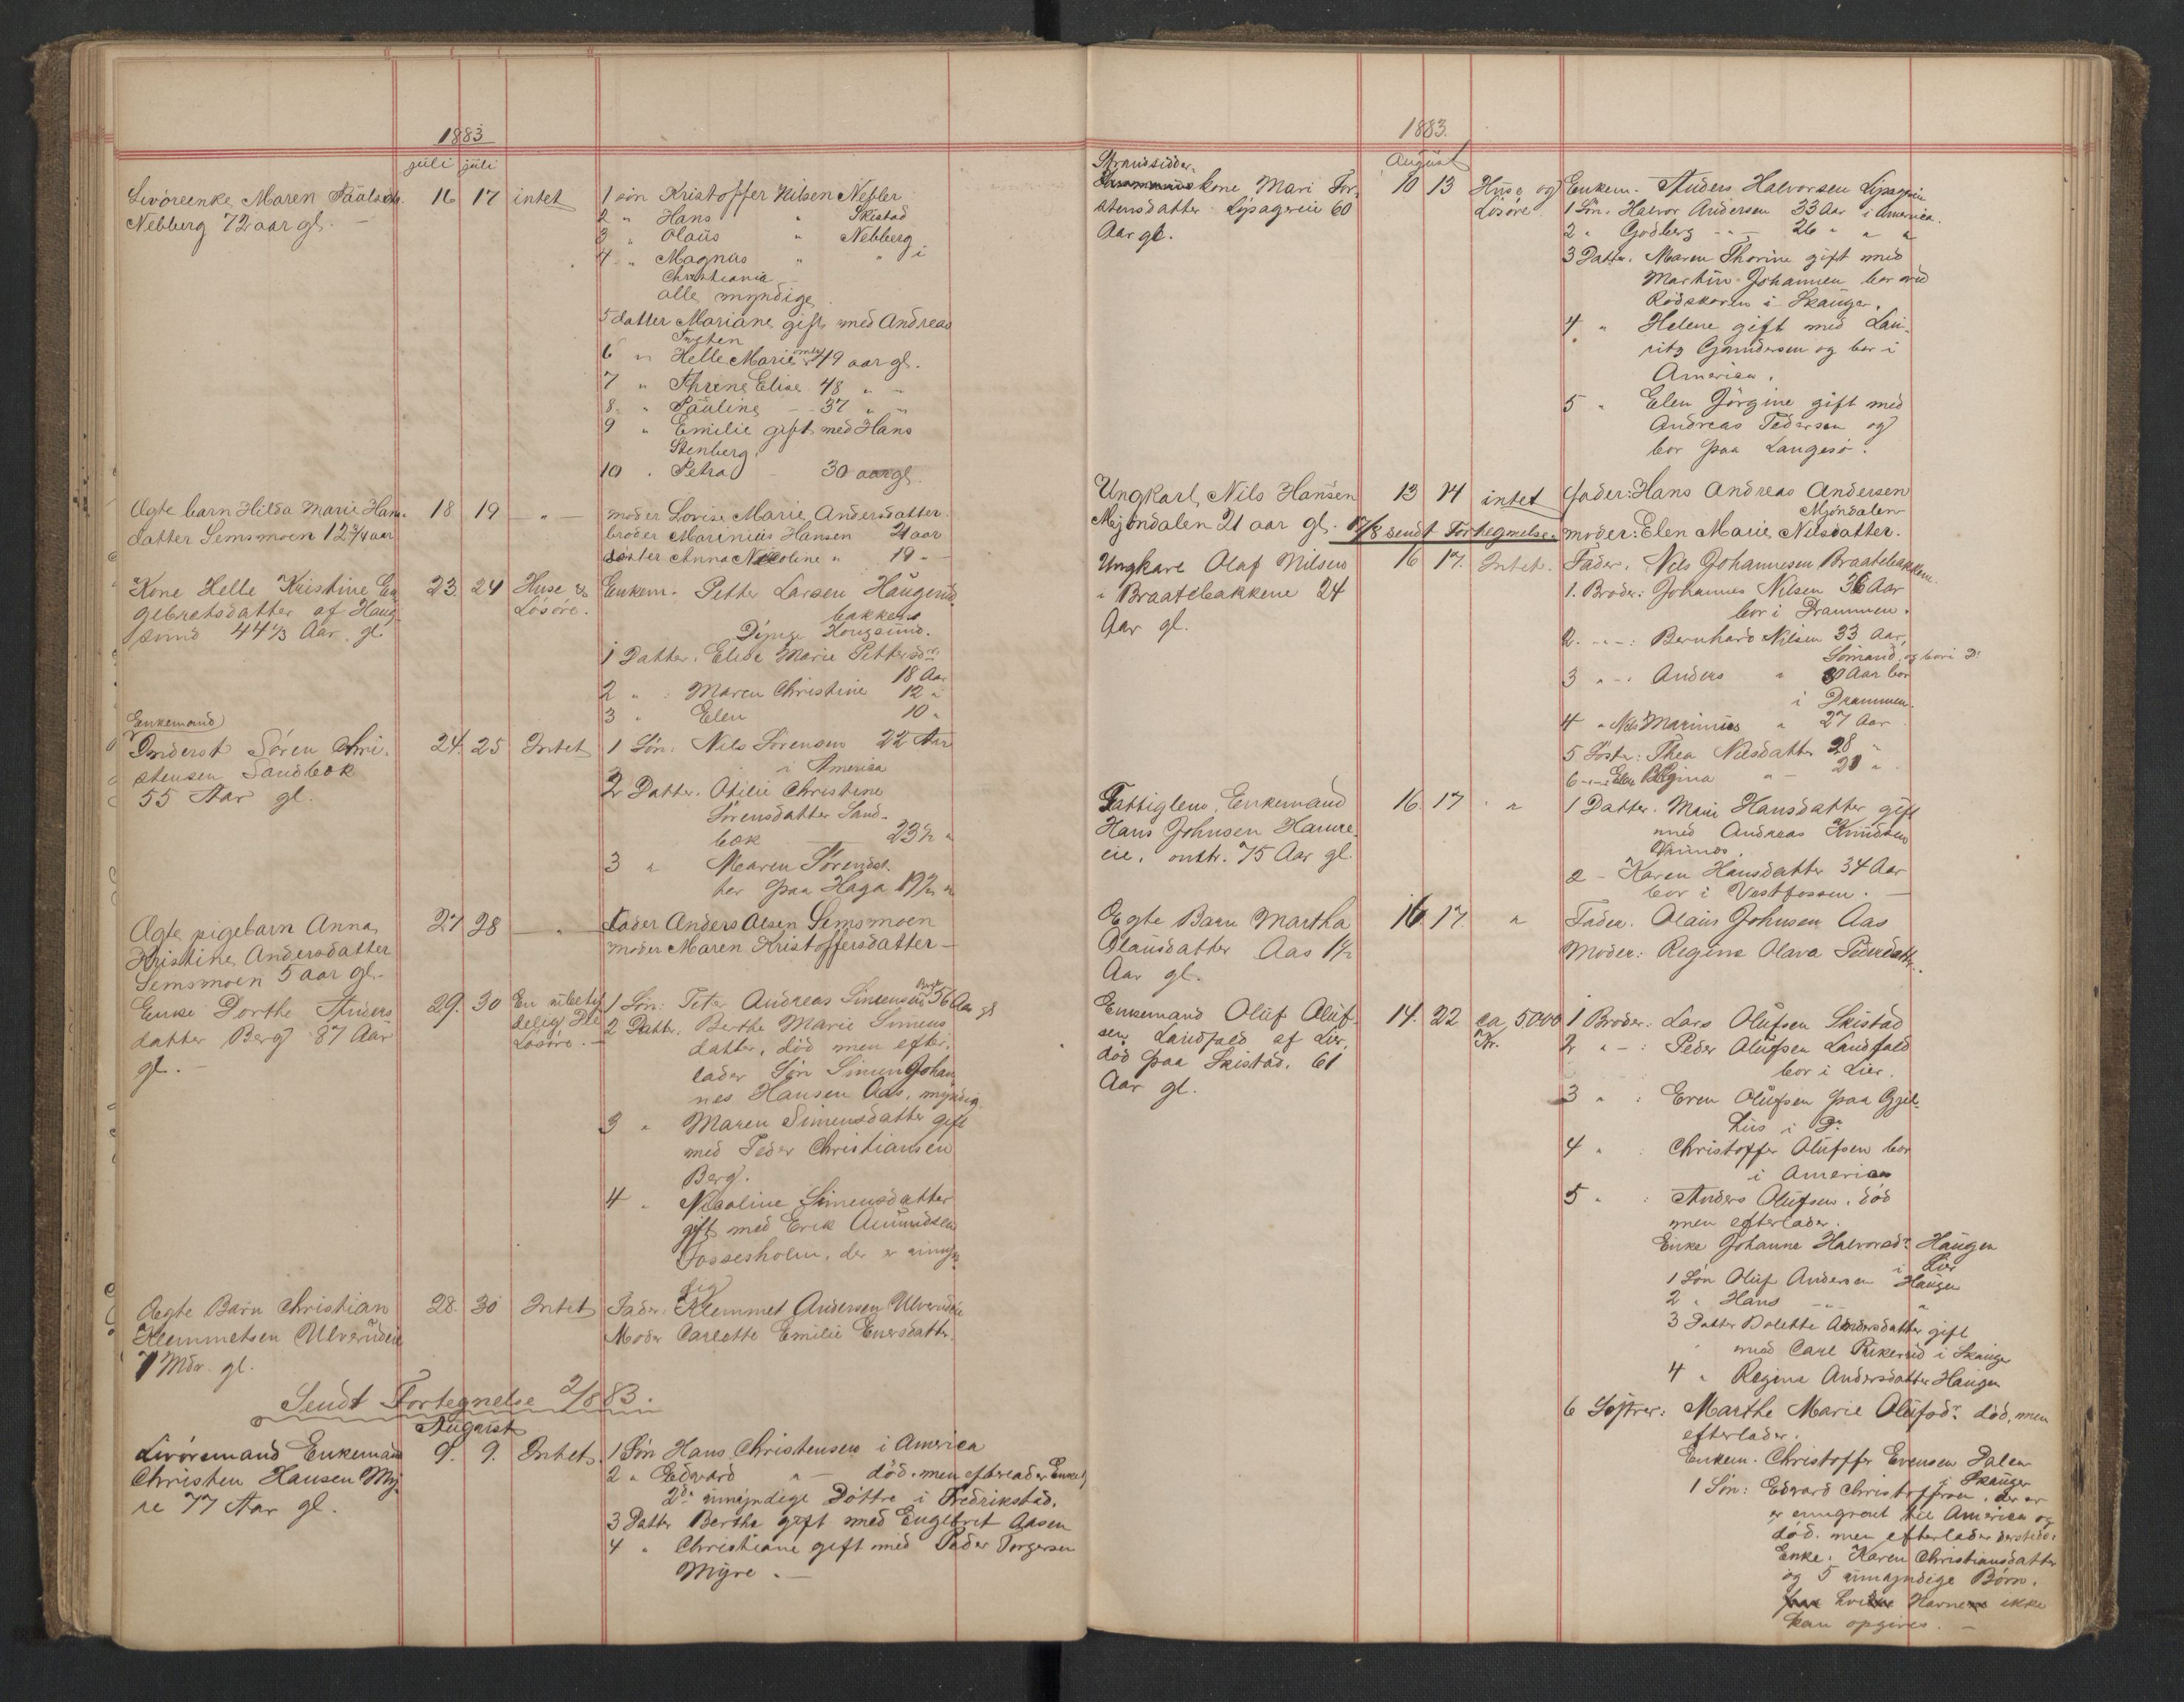 1883
juli juli
Livöreenke Maren Paalsdtr. 16 17 intet 1 sön Kristoffer Nilsen Nebler
Nebberg 72 aar gl. 2 " Hans " Skistad
3 " Olaüs " Nebberg
4 " Magnus " " i
Christiania
alle myndige.
5 datter Mariane gift med Andreas
Tveten
6 " Helle Marie omtr 49 aar gl.
7 " Thrine Elise 48 " "
8 " Pauline 37 " "
9 " Emilie gift med Hans
Stenberg.
10 " Petra 30 aar gl.
Ægte barn Hilda Marie Hans- 18 19 " moder Lovise Marie Andersdatter.
datter Semsmoen 12 3/4 aar broder Marinius Hansen 21 aar
söster Anna Nicoline " 19 "
Kone Helle Kristine En 23 24 Huse & Enkem. Petter Larsen Haugsund
gebretsdatter af Haug Lösöre. bakkene
sund 44 1/3 Aar gl. Hougsund.
1 Datter. Elise Marie Pettersdr.
18 Aar
2 " : Maren Christine 12 "
3 " Elen 10 "
Enkemand
Inderst Sören Chri- 24. 25 Intet 1 Sön: Nils Sörensen 22 Aar
stensen Sandbek i America
55 Aar gl. 2 Datter. Otilie Christine
Sörensdatter Sand-
bek 23 1/2 "
3 " Maren Sörensdat-
ter paa Haga 19 1/2 "
Ægte pigebarn Anna 27 28 " fader Anders Olsen Semsmoen
Kristine Andersdatter moder Maren Kristoffersdatter
Semsmoen 5 aar gl.
Enke Dorthe Anders 29. 30 En ubety 1 Sön: Peter Andreas Simensen Berg 56 Aar gl
datter Berg 87 Aar delig Del 2 Datter. Berthe Marie Simens
gl. Lösöre. datter, död men efter-
lader Sön Simen Johan
nes Hansen Aas, myndig.
3 " Maren Simensdatter gift
med Peder Christiansen
Berg.
4 " Nicoline Simensdatter
gift med Erik Amundsen
Fossesholm, der er myn
dig
Ægte Barn Christian 28. 30 Intet Fader: Klemmet Andersen Ulverudeie
Klemmetsen Ulverudeie Moder Carlette Emilie Eversdatter.
7 Mdr. gl.
Sendt Fortegnelse 2/8 83.
August
Livöremand Enkemand 9. 9. Intet. 1 Sön Hans Christensen i America
Christen Hansen My- 2 " Edvard " död, men efterlader Enke &
re 77 Aar gl. 2de umyndige Döttre i Fredrikstad.
3 Datter Berthe gift med Engebret Aasen
4 " Christiane gift med Peder Torgersen
Myre.
1883.
August
Strandsidder-
kone Mari Tor- 10 13 Huse og Enkem. Anders Halvorsen
stensdatter 60 Lösöre. 1 Sön. Halvor Andersen 33 Aar i America.
Aar gl. 2 " Godberg 26 " " "
3 Datter. Maren Thorine gift med
Martin Johannen bor ved
Rödskoren i Skauger.
4 " Helene gift med Lau-
ritz Gundersen og bor i
America.
5 " Elen Jörgine gift med
Andreas Pedersen og
bor paa Langesö.
Ungkarl Nils Hansen 13 14 intet fader: Hans Andreas Andersen
Mjöndalen
Mjöndalen 21 aar gl. 17/8 sendt Fortegnelse. moder: Elen Marie Nilsdatter.
Ungkarl Olaf Nilsen 16 17. Intet. Fader. Nils Johannesen Braatebakken.
i Braatebakkene 24 1. Broder: Johannes Nilsen 36 Aar
Aar gl. bor i Drammen.
2. " : Bernhard Nilsen 33 Aar,
Sömand, og bor i Dr
3 " : Anders " 30 Aar bor
i Drammen.
4 " Nils Marinius " 27 Aar
5 Söster: Thea Nilsdatter 28 "
6 " : Elen Regina " 21 "
Fattiglem, Enkemand 16 17 " 1 Datter. Mari Hansdatter gift
Hans Johnsen Harure med Andreas Knudsen
eie, omtr. 75 Aar gl.
2 - Karen Hansdatter 34 Aar
bor i Vestfossen.
Ægte Barn Martha 16 17. " Fader. Olaus Johnsen Aas
Olausdatter Aas 1 1/2 Moder: Regine Olava Pedersdatter.
Aar gl.
Enkemand Oluf Oluf- 14. 22 ca 5000 1 Broder: Lars Olufsen Skistad
sen Landfald af Lier, Kr. 2 " : Peder Olufsen Landfald
död paa Skistad. 61 bor i Lier.
Aar gl. 3 " : Even Olufsen paa Gjel-
hus i Dr
4 " : Christoffer Olufsen bor
i America
5 " : Anders Olufsen. död
men efterlader.
Enke Johanne Halvorsdr. Haugen
i Lier
1 Sön Oluf Andersen Haugen
2 " Hans " "
3 Datter Bolette Andersdatter gift
med Carl Pukerud i Skauger
4 " Regine Andersdatter Haugen
6 Söstrer: Marthe Marie Olufsdr. död, men
efterlader.
Enkem. Christoffer Evensen Dalen
i Skauger
1 Sön: Edvard Christoffersen, der er
er emigreret til America og
död. men efterlader dersteds:
Enke: Karen Christiansdatter
og 5 umyndige Börn.
hvis Navne ikke
kan opgives.